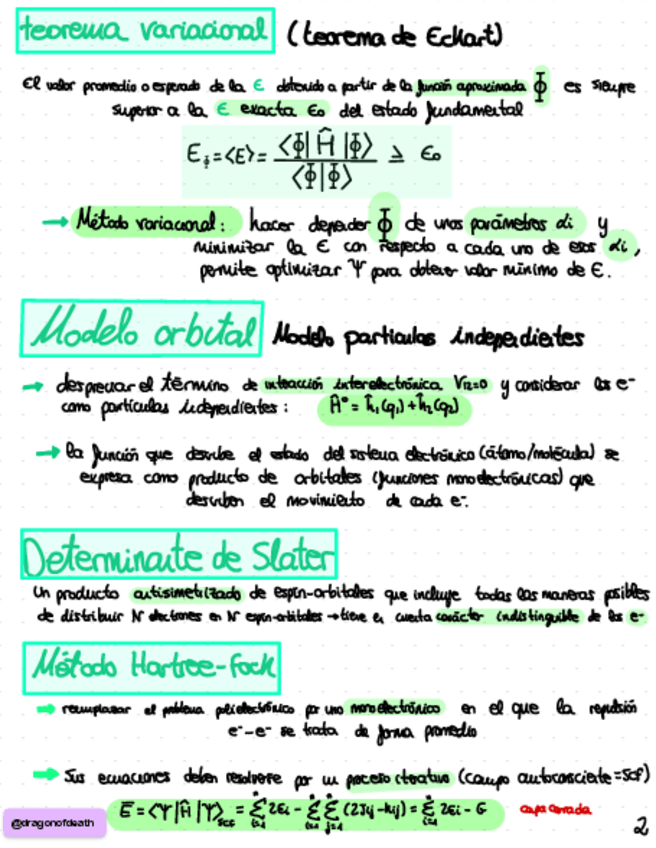 teorema variacional (teorema de Eckart)
El valor promedio o esperado de la E obtenido a partir de la función aproximada Φ es siempre
superior a la E exacta E₀ del estado fundamental
E_Φ = <E> = <Φ|Ĥ|Φ> / <Φ|Φ> ≥ E₀
→ Método variacional: hacer depender Φ de unos parámetros αi y
minimizar la E con respecto a cada uno de esos αi,
permite optimizar Ψ para obtener valor mínimo de E.
Modelo orbital Modelo partículas independientes
→ despreciar el término de interacción interelectrónica V₁₂=0 y considerar los e⁻
como partículas independientes: Ĥ° = ĥ₁(q₁) + ĥ₂(q₂)
→ la función que describe el estado del sistema electrónico (átomo/molécula) se
expresa como producto de orbitales (funciones monoelectrónicas) que
describen el movimiento de cada e⁻.
Determinante de Slater
Un producto antisimetrizado de espín-orbitales que incluye todas las maneras posibles
de distribuir N electrones en N espín-orbitales → tiene en cuenta carácter indistinguible de los e⁻
Método Hartree-Fock
→ reemplazar el problema polielectrónico por uno monoelectrónico en el que la repulsión
e⁻-e⁻ se trata de forma promedio
→ Sus ecuaciones deben resolverse por un proceso iterativo (campo autoconsciente = SCF)
Ē = <Ψ|Ĥ|Ψ> = Σ 2Ei - Σ Σ (2Jij - Kij) = Σ 2Ei - G capa cerrada
@dragonofdeath
2